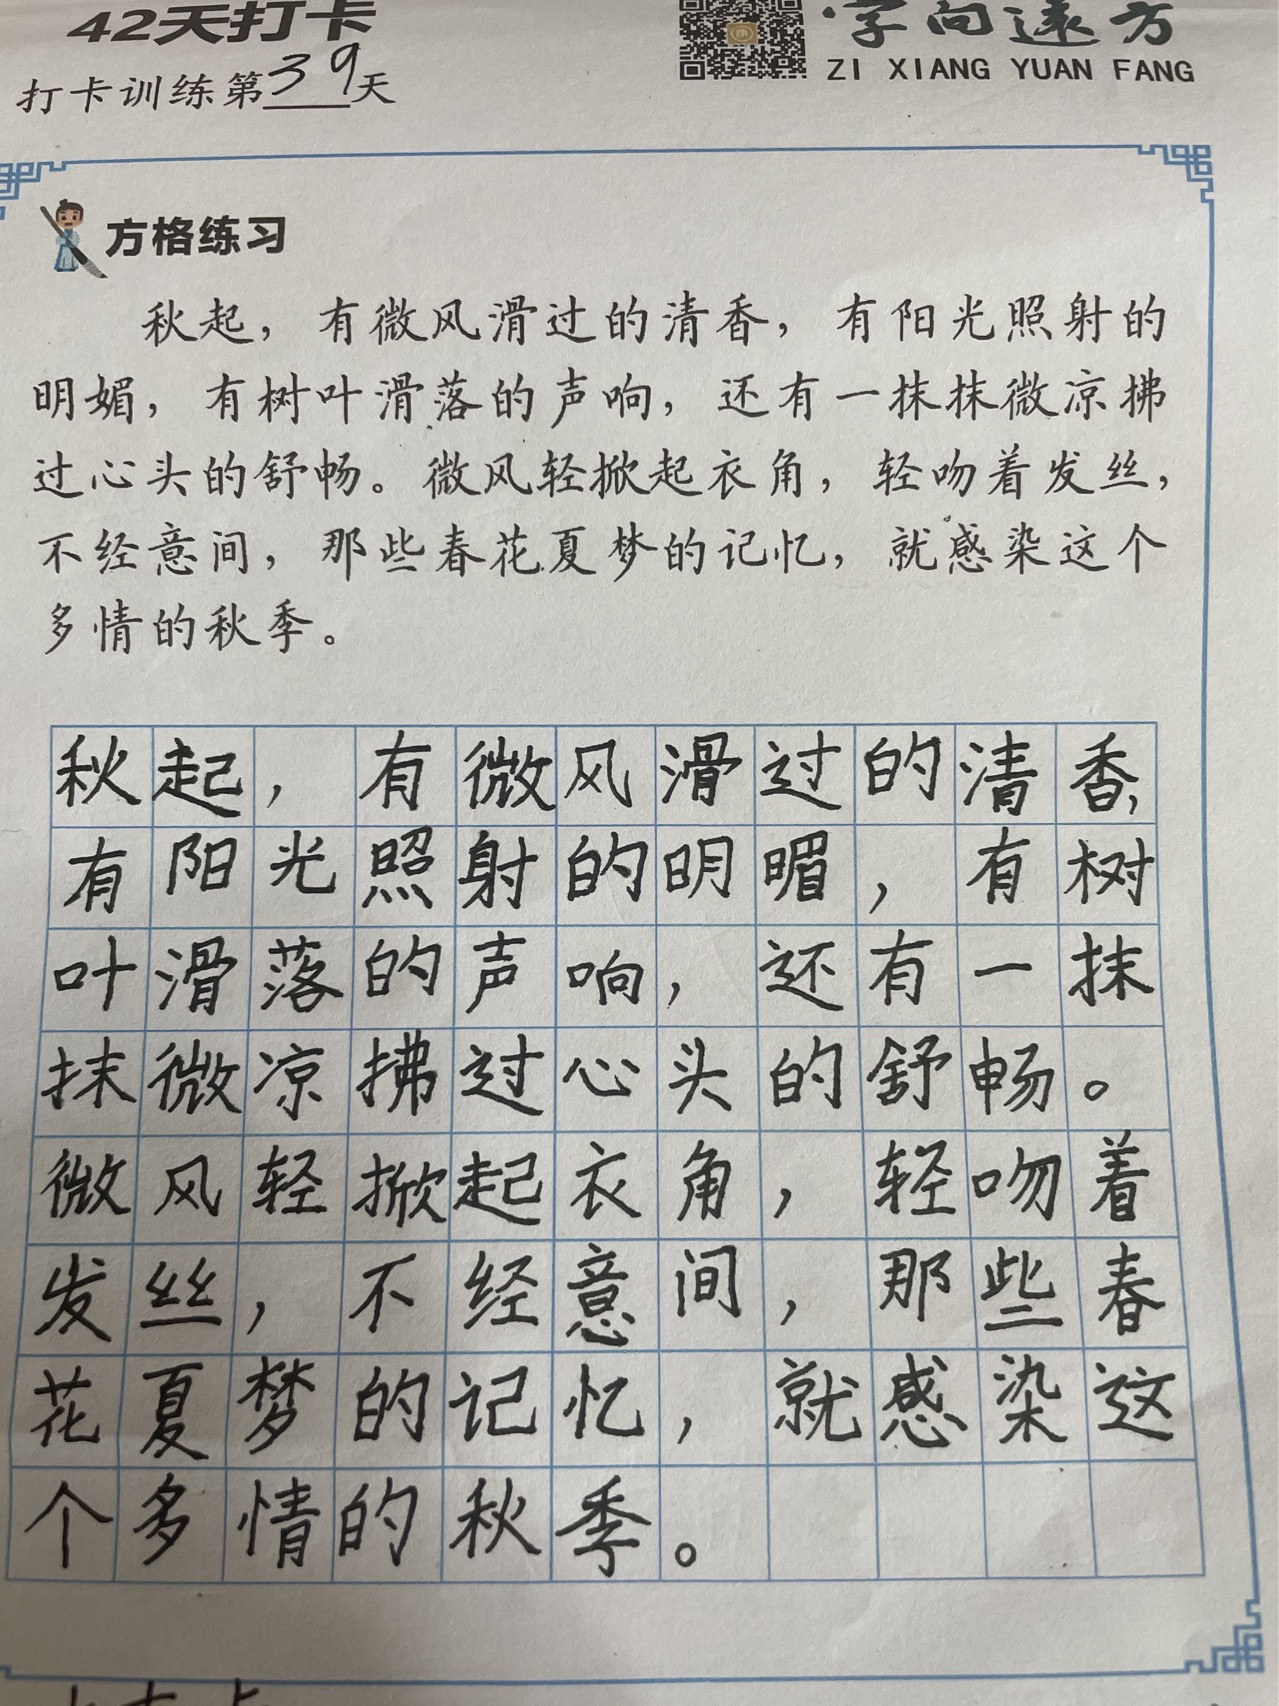 42天打卡
字向远方
ZI XIANG YUAN FANG
打卡训练第39天
方格练习
秋起，有微风滑过的清香，有阳光照射的
明媚，有树叶滑落的声响，还有一抹抹微凉拂
过心头的舒畅。微风轻掀起衣角，轻吻着发丝，
不经意间，那些春花夏梦的记忆，就感染这个
多情的秋季。
秋起，有微风滑过的清香，
有阳光照射的明媚，有树
叶滑落的声响，还有一抹
抹微凉拂过心头的舒畅。
微风轻掀起衣角，轻吻着
发丝，不经意间，那些春
花夏梦的记忆，就感染这
个多情的秋季。